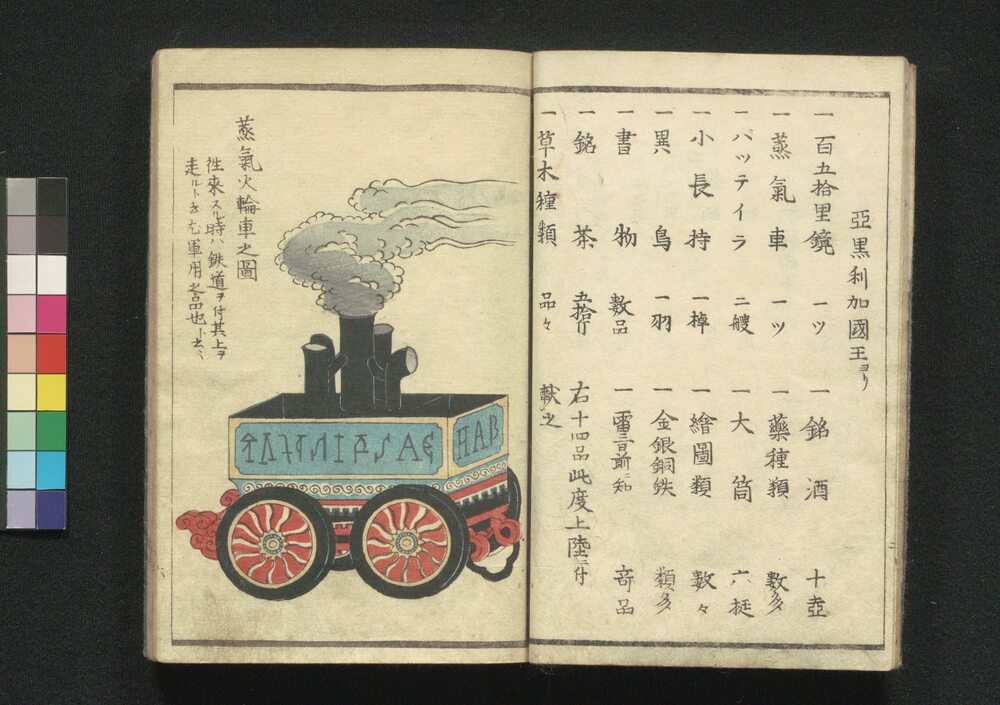 亞黒利加國王ヨリ
一 百五拾里鏡 一ツ 一 銘酒 十壺
一 蒸氣車 一ツ 一 藥種類 數多
一 バッテイラ 二艘 一 大筒 六挺
一 小長持 一棹 一 繪圖類 數々
一 異鳥 一羽 一 金銀銅鉄 類多
一 書物 數品 一 雷三日前知 奇品
一 銘茶 五拾斤 右十四品此度上陸ニ付
一 草木種類 品々 献之
蒸氣火輪車之圖
往來スル時ハ鉄道ヲ付其上ヲ
走ルト云尤軍用之品也ト云々